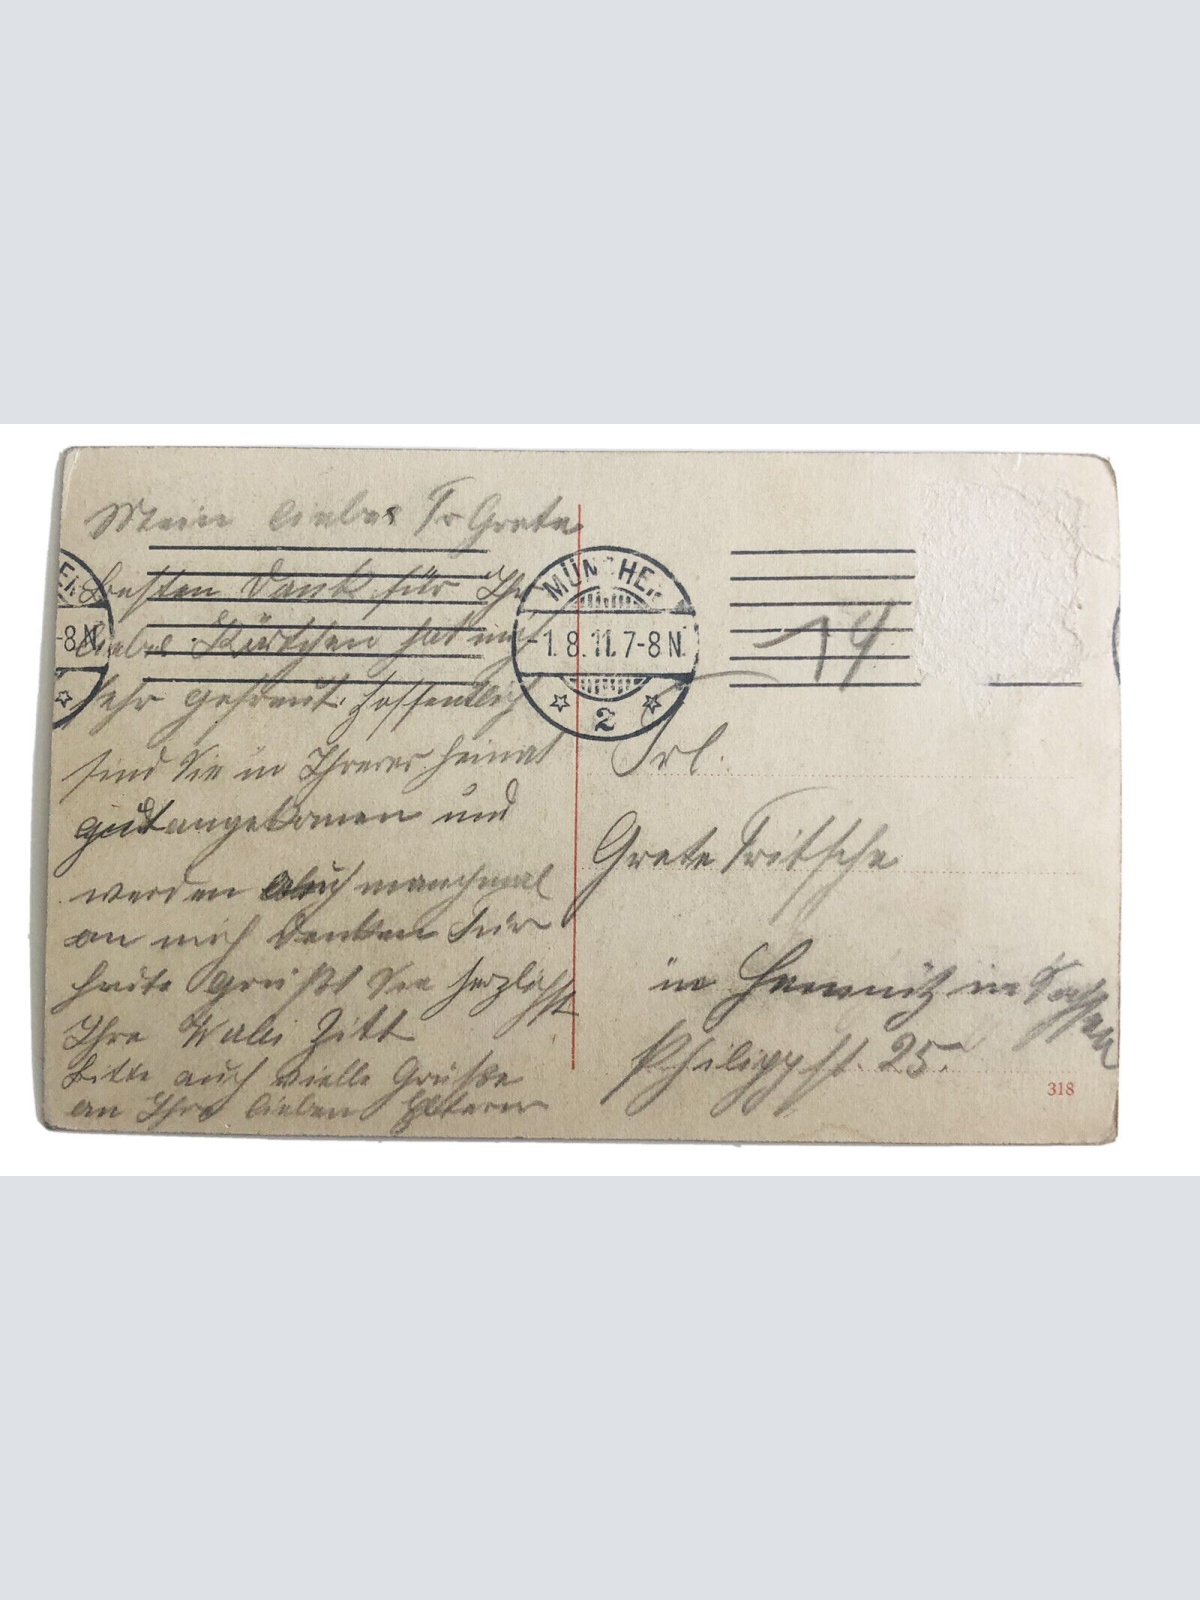 Mein liebes Fr Grete
besten Dank für Ihr
liebes Kärtchen hat mich
sehr gefreut. hoffentlich
sind Sie in Ihrerer heimat
gut angekomen und
werden auch manchmal
an mich denken Für
heute grüßt Sie herzlichst
Ihre Walli Zitt
bitte auch vielle Grüße
an Ihre lieben Elteren
MÜNCHEN
-1.8.11.7-8N.
2
-8N.
14
Frl.
Grete Fritsche
in Hemnitz in Sachsen
Philippst. 25.
318